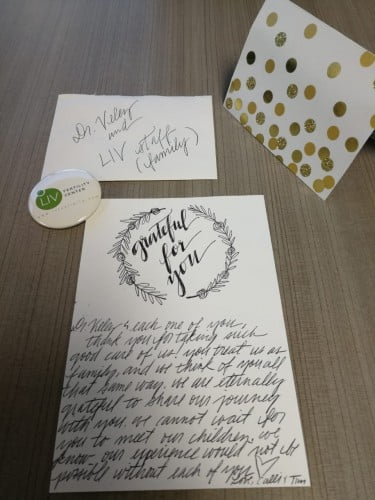 Dr. Veley
and
LIV staff
(family)
LIV
FERTILITY
CENTER
grateful
for
you
Dr Veley & each one of you,
thank you for taking such
good care of us! you treat us as
family, and we think of you all
that same way. we are eternally
grateful to share our journey
with you. we cannot wait for
you to meet our children, we
know our experience would not be
possible without each of you
Love, Calli & Tim